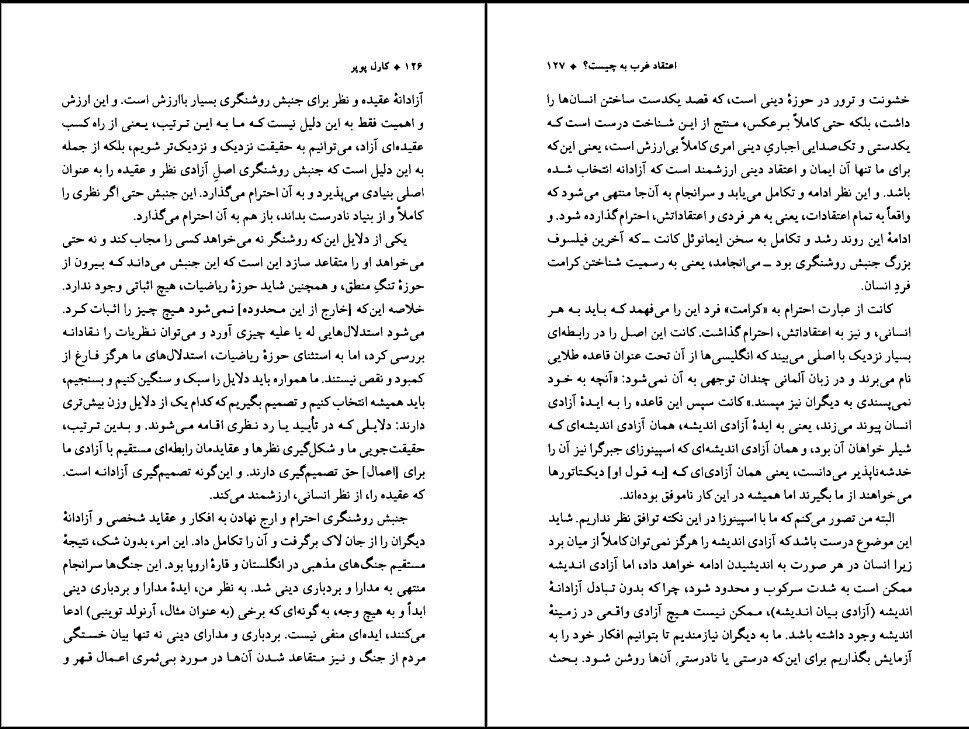 ۱۲۶ ◆ کارل پوپر
آزادانهٔ عقیده و نظر برای جنبش روشنگری بسیار باارزش است. و این ارزش
و اهمیت فقط به این دلیل نیست که ما به این ترتیب، یعنی از راه کسب
عقیده‌ای آزاد، می‌توانیم به حقیقت نزدیک و نزدیک‌تر شویم، بلکه از جمله
به این دلیل است که جنبش روشنگری اصلِ آزادی نظر و عقیده را به عنوان
اصلی بنیادی می‌پذیرد و به آن احترام می‌گذارد. این جنبش حتی اگر نظری را
کاملاً و از بنیاد نادرست بداند، باز هم به آن احترام می‌گذارد.
یکی از دلایل این‌که روشنگر نه می‌خواهد کسی را مجاب کند و نه حتی
می‌خواهد او را متقاعد سازد این است که این جنبش می‌داند که بیرون از
حوزهٔ تنگِ منطق، و همچنین شاید حوزهٔ ریاضیات، هیچ اثباتی وجود ندارد.
خلاصه این‌که [خارج از این محدوده] نمی‌شود هیچ چیز را اثبات کرد.
می‌شود استدلال‌هایی له یا علیه چیزی آورد و می‌توان نظریات را نقادانه
بررسی کرد، اما به استثنای حوزهٔ ریاضیات، استدلال‌های ما هرگز فارغ از
کمبود و نقص نیستند. ما همواره باید دلایل را سبک و سنگین کنیم و بسنجیم،
باید همیشه انتخاب کنیم و تصمیم بگیریم که کدام یک از دلایل وزن بیش‌تری
دارند: دلایلی که در تأیید یا رد نظری اقامه می‌شوند. و بدین ترتیب،
حقیقت‌جویی ما و شکل‌گیری نظرها و عقایدمان رابطه‌ای مستقیم با آزادی ما
برای [اعمال] حق تصمیم‌گیری دارند. و این‌گونه تصمیم‌گیری آزادانه است.
که عقیده را، از نظر انسانی، ارزشمند می‌کند.
جنبش روشنگری احترام و ارج نهادن به افکار و عقاید شخصی و آزادانهٔ
دیگران را از جان لاک برگرفت و آن را تکامل داد. این امر، بدون شک، نتیجهٔ
مستقیم جنگ‌های مذهبی در انگلستان و قارهٔ اروپا بود. این جنگ‌ها سرانجام
منتهی به مدارا و بردباری دینی شد. به نظر من، ایدهٔ مدارا و بردباری دینی
ابداً و به هیچ وجه، به گونه‌ای که برخی (به عنوان مثال، آرنولد توینبی) ادعا
می‌کنند، ایده‌ای منفی نیست. بردباری و مدارای دینی نه تنها بیان خستگی
مردم از جنگ و نیز متقاعد شدن آن‌ها در مورد بی‌ثمری اعمال قهر و
اعتقاد غرب به چیست؟ ◆ ۱۲۷
خشونت و ترور در حوزهٔ دینی است، که قصد یکدست ساختن انسان‌ها را
داشت، بلکه حتی کاملاً برعکس، منتج از این شناخت درست است که
یکدستی و تک‌صدایی اجباریِ دینی امری کاملاً بی‌ارزش است، یعنی این‌که
برای ما تنها آن ایمان و اعتقاد دینی ارزشمند است که آزادانه انتخاب شده
باشد. و این نظر ادامه و تکامل می‌یابد و سرانجام به آن‌جا منتهی می‌شود که
واقعاً به تمام اعتقادات، یعنی به هر فردی و اعتقاداتش، احترام گذارده شود. و
ادامهٔ این روند رشد و تکامل به سخن ایمانوئل کانت ــ که آخرین فیلسوف
بزرگ جنبش روشنگری بود ــ می‌انجامد، یعنی به رسمیت شناختن کرامت
فردِ انسان.
کانت از عبارت احترام به «کرامت» فرد این را می‌فهمد که باید به هر
انسانی، و نیز به اعتقاداتش، احترام گذاشت. کانت این اصل را در رابطه‌ای
بسیار نزدیک با اصلی می‌بیند که انگلیسی‌ها از آن تحت عنوان قاعده طلایی
نام می‌برند و در زبان آلمانی چندان توجهی به آن نمی‌شود: «آنچه به خود
نمی‌پسندی به دیگران نیز مپسند.» کانت سپس این قاعده را به ایدهٔ آزادی
انسان پیوند می‌زند، یعنی به ایدهٔ آزادی اندیشه، همان آزادی اندیشه‌ای که
شیلر خواهان آن بود، و همان آزادی اندیشه‌ای که اسپینوزای جبرگرا نیز آن را
خدشه‌ناپذیر می‌دانست، یعنی همان آزادی‌ای که [به قول او] دیکتاتورها
می‌خواهند از ما بگیرند اما همیشه در این کار ناموفق بوده‌اند.
البته من تصور می‌کنم که ما با اسپینوزا در این نکته توافق نظر نداریم. شاید
این موضوع درست باشد که آزادی اندیشه را هرگز نمی‌توان کاملاً از میان برد
زیرا انسان در هر صورت به اندیشیدن ادامه خواهد داد، اما آزادی اندیشه
ممکن است به شدت سرکوب و محدود شود، چرا که بدون تبادل آزادانهٔ
اندیشه (آزادی بیان اندیشه)، ممکن نیست هیچ آزادی واقعی در زمینهٔ
اندیشه وجود داشته باشد. ما به دیگران نیازمندیم تا بتوانیم افکار خود را به
آزمایش بگذاریم برای این‌که درستی یا نادرستی آن‌ها روشن شود. بحث